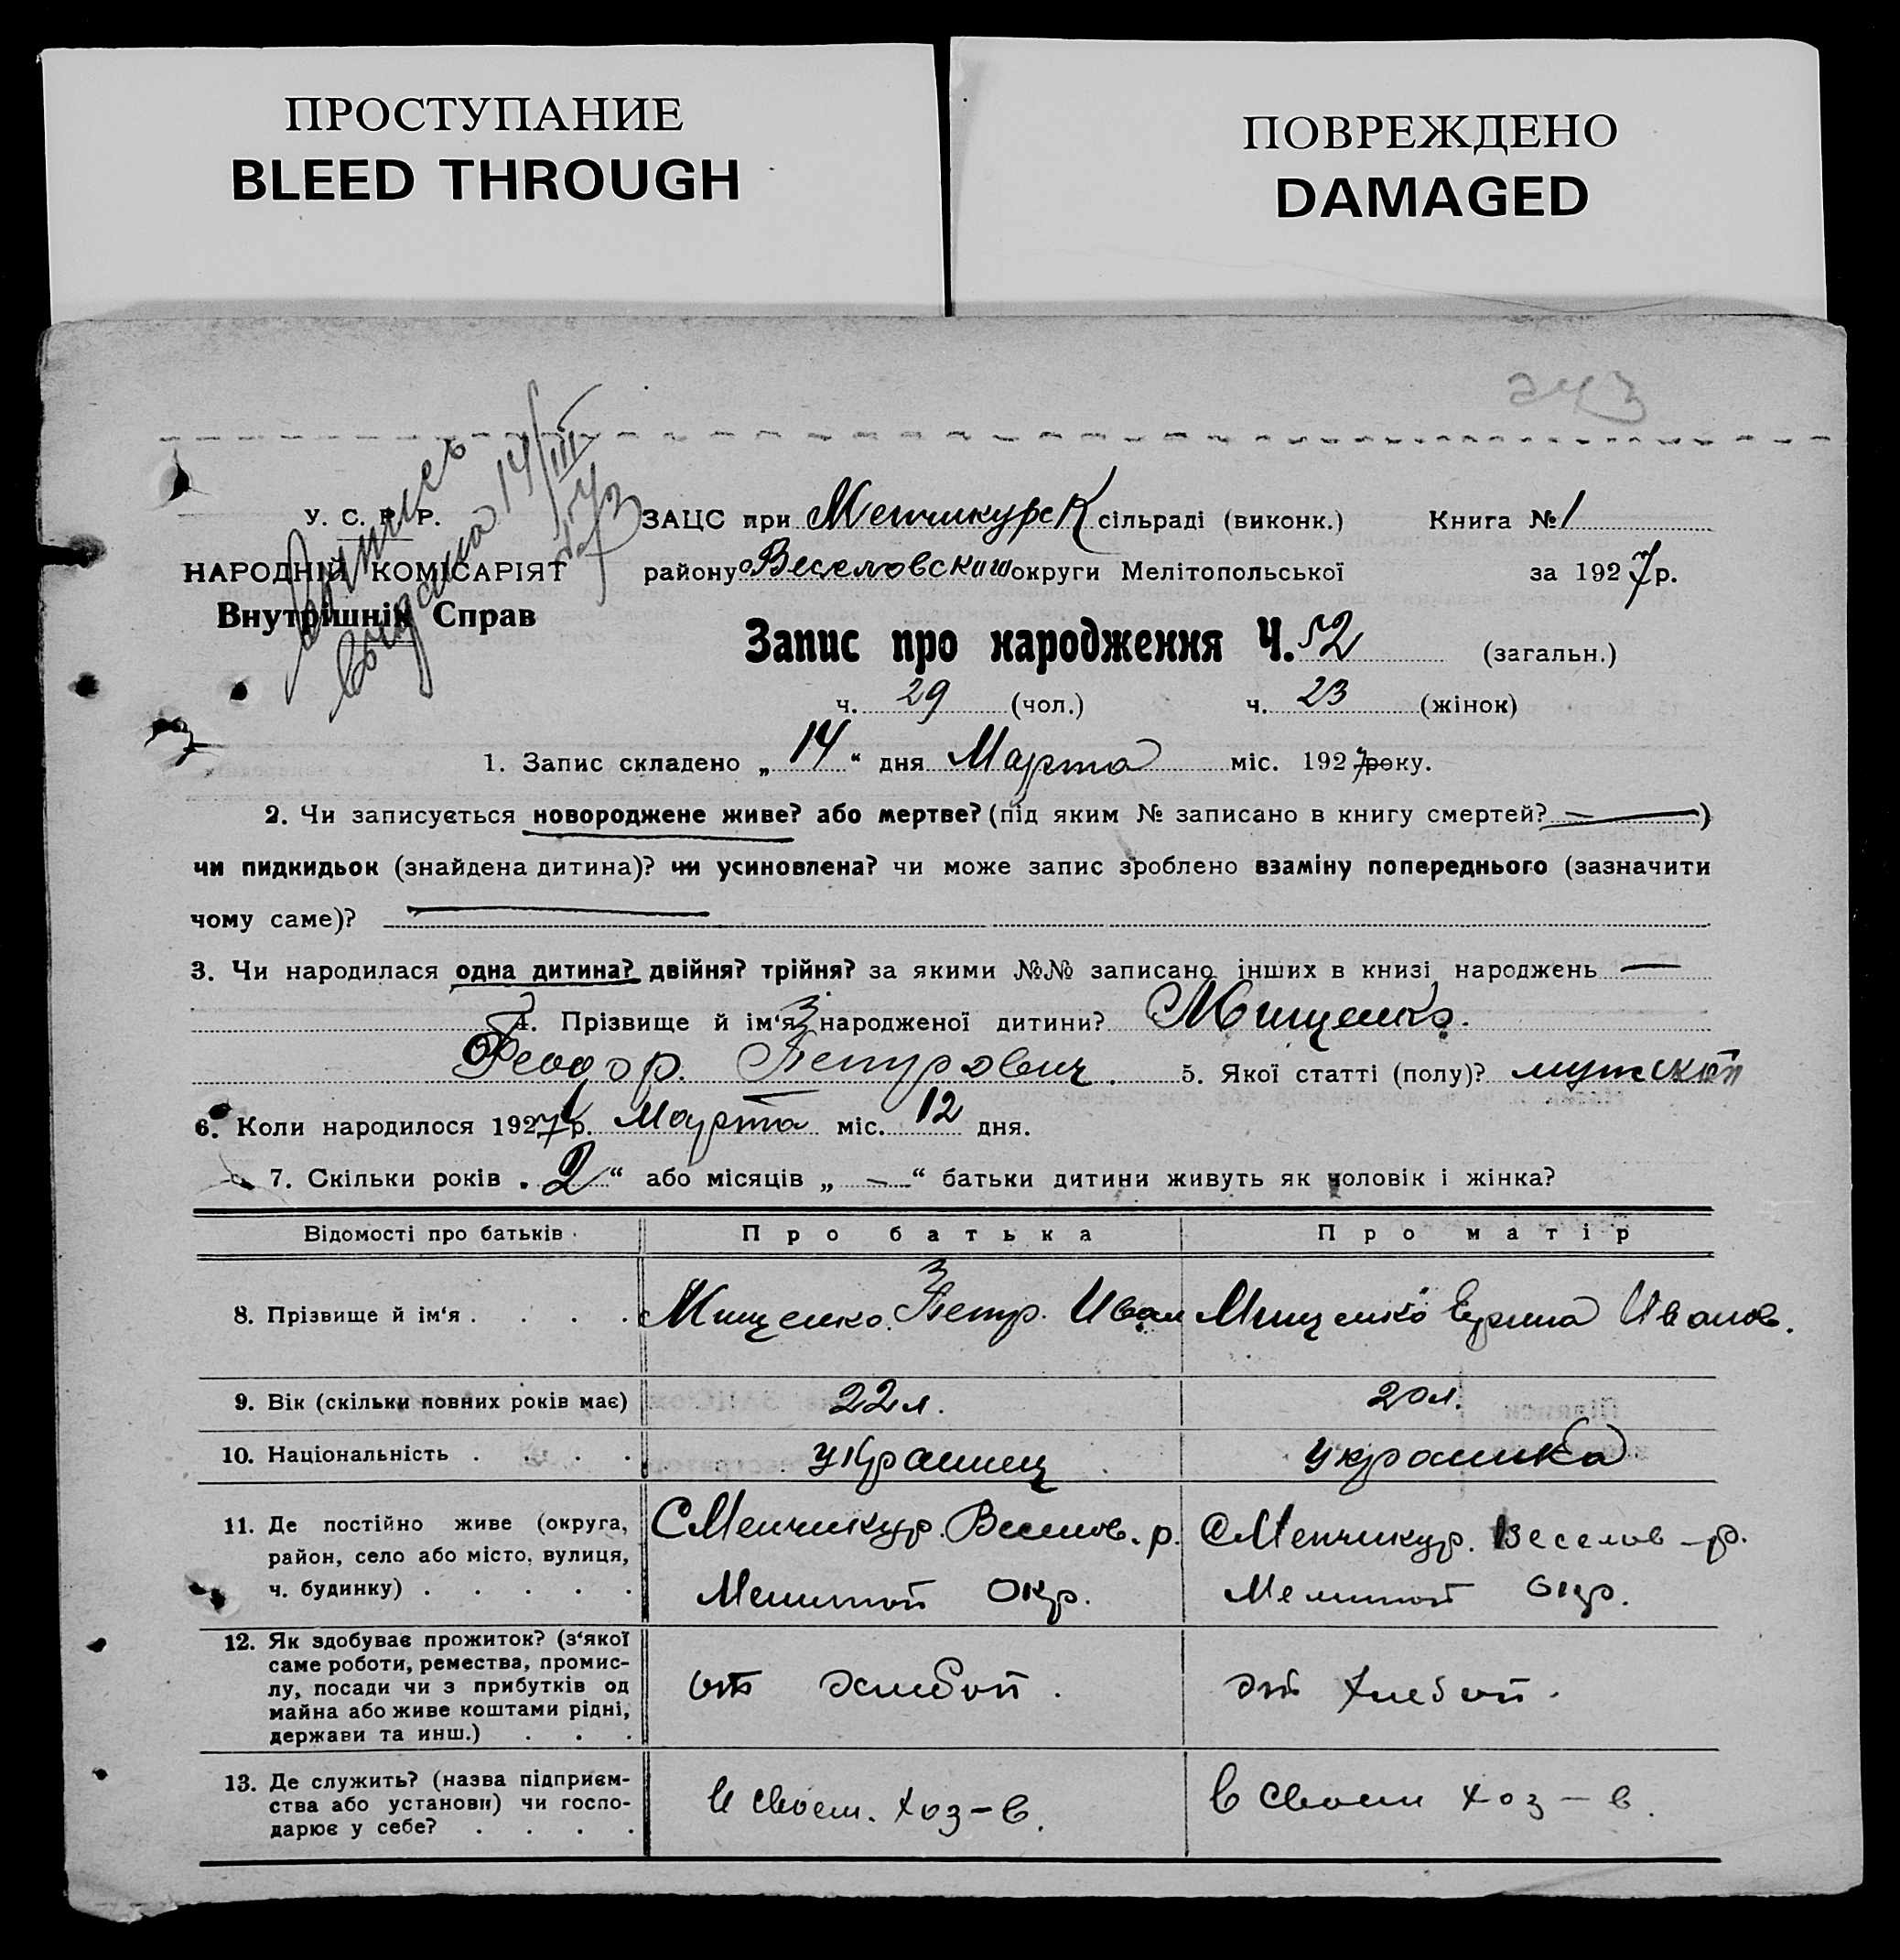 ПРОСТУПАНИЕ
BLEED THROUGH
ПОВРЕЖДЕНО
DAMAGED
243
У. С. Р. Р.
НАРОДНІЙ КОМІСАРІЯТ
Внутрішніх Справ
14/III
ЗАЦС при Менчикурск сільраді (виконк.) Книга № 1
району Веселовским округи Мелітопольської за 1927 р.
Запис про народження Ч. 52 (загальн.)
ч. 29 (чол.) ч. 23 (жінок)
1. Запис складено „ 14 “ дня Марта міс. 1927 року.
2. Чи записується новороджене живе? або мертве? (під яким № записано в книгу смертей? — )
чи пидкидьок (знайдена дитина)? чи усиновлена? чи може запис зроблено взаміну попереднього (зазначити
чому саме)?
3. Чи народилася одна дитина? двійня? трійня? за якими №№ записано інших в книзі народжень —
4. Прізвище й ім‘я народженої дитини? Мищенко.
Феодор. Петрович. 5. Якої статті (полу)? мужской
6. Коли народилося 1927 р. Марта міс. 12 дня.
7. Скільки років „ 2 “ або місяців „ — “ батьки дитини живуть як чоловік і жінка?
Відомості про батьків Про батька Про матір
8. Прізвище й ім‘я . . . . Мищенко. Петр. Иван Мищенко Ирина Иванов.
9. Вік (скільки повних років має) 22 л. 20 л.
10. Національність . . . . украинец украинка
11. Де постійно живе (округа,
район, село або місто, вулиця,
ч. будинку) . . . . .
С Менчикур. Веселов. р.
Мелитоп Окр.
С Менчикур. Веселов - р.
Мелитоп Окр.
12. Як здобуває прожиток? (з‘якої
саме роботи, ремества, промис-
лу, посади чи з прибутків од
майна або живе коштами рідні,
держави та инш.) . . .
от хлебоп.
от хлебоп.
13. Де служить? (назва підприєм-
ства або установи) чи госпо-
дарює у себе? . . . .
в своем. хоз-в.
в своем хоз-в.